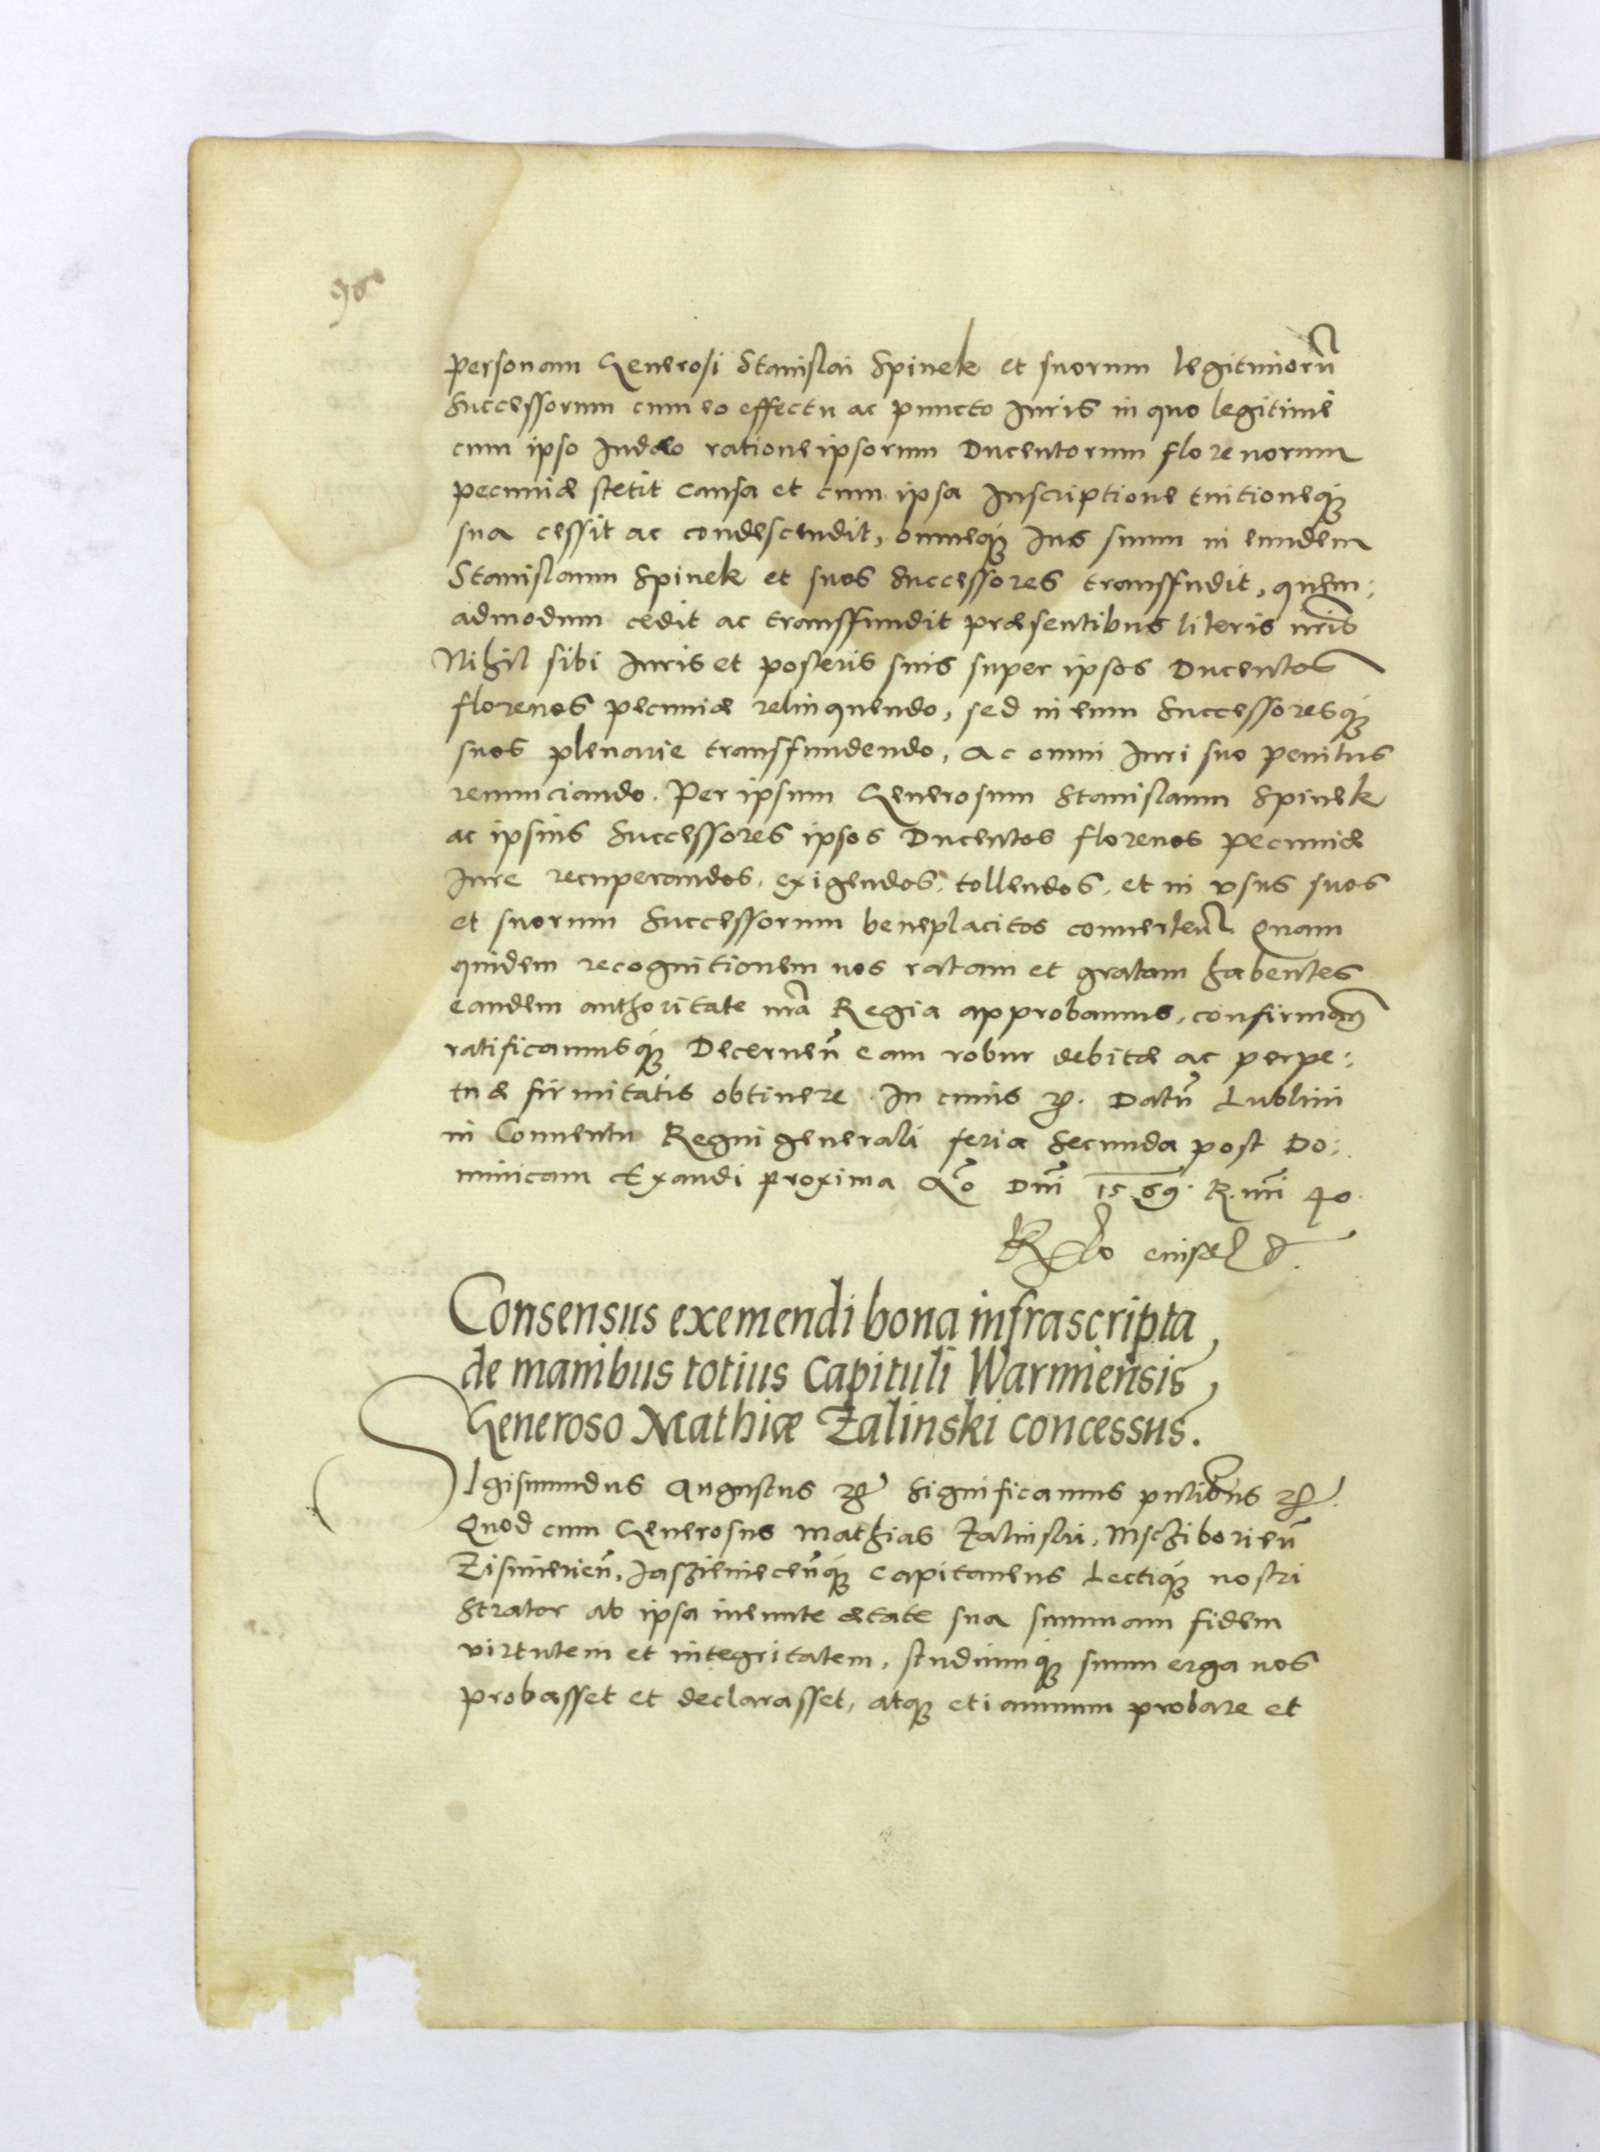 98
personam Generosi Stanislai Spinek et suorum legitimorũ
Successorum cum eo effectu ac puncto Iuris in quo legitimè
cum ipso Iudæo ratione ipsorum Ducentorum florenorum
pecuniæ stetit causa et cum ipsa Inscriptione tuitioneq́ꝫ
sua cessit ac condescendit, omneq́ꝫ Ius suum in eundem
Stanislaum Spinek et suos Successores transfudit, quem:
admodum cedit ac transffundit præsentibus literis nr̃is
Nihil sibi Iuris et posteris suis super ipsos Ducentos
florenos pecuniæ relinquendo, sed in eum Successoresq́ꝫ
suos plenarie transfundendo, Ac omni Iuri suo penitus
renunciando. Per ipsum Generosum Stanislaum Spinek
ac ipsius Successores ipsos Ducentos florenos pecuniæ
Iure recuperandos, exigendos, tollendos, et in vsus suos
et suorum Successorum beneplacitos conuerten̄. Quam
quidem recognitionem nos ratam et gratam habentes
eandem authoritate nr̃a Regia approbamus, confirmam9
ratificamusq́ꝫ Decernen̄ eam robur debitæ ac perpe:
tuæ firmitatis obtinere. In cuius rei. Datũ Lublini
in Conuentu Regni generali feria Secunda post Do:
minicam Exaudi proxima Ao Dn̄i 1569. R. nr̃i 40.

Consensus exemendi bona infrascripta
de manibus totius Capituli Warmiensis,
Generoso Mathiæ Zalinski concessus.
SIgismundus Augustus rex Significamus pn̄tibus etc.
Quod cum Generosus Mathias Zalinski, Mscziborien̄
Zismerien̄, Jaszieniecen̄q́ꝫ Capitaneus Lectiq́ꝫ nostri
Strator ab ipsa ineunte ætate sua summam fidem
virtutem et integritatem, studiumq́ꝫ suum erga nos
probasset et declarasset, atqꝫ etiamnum probare et